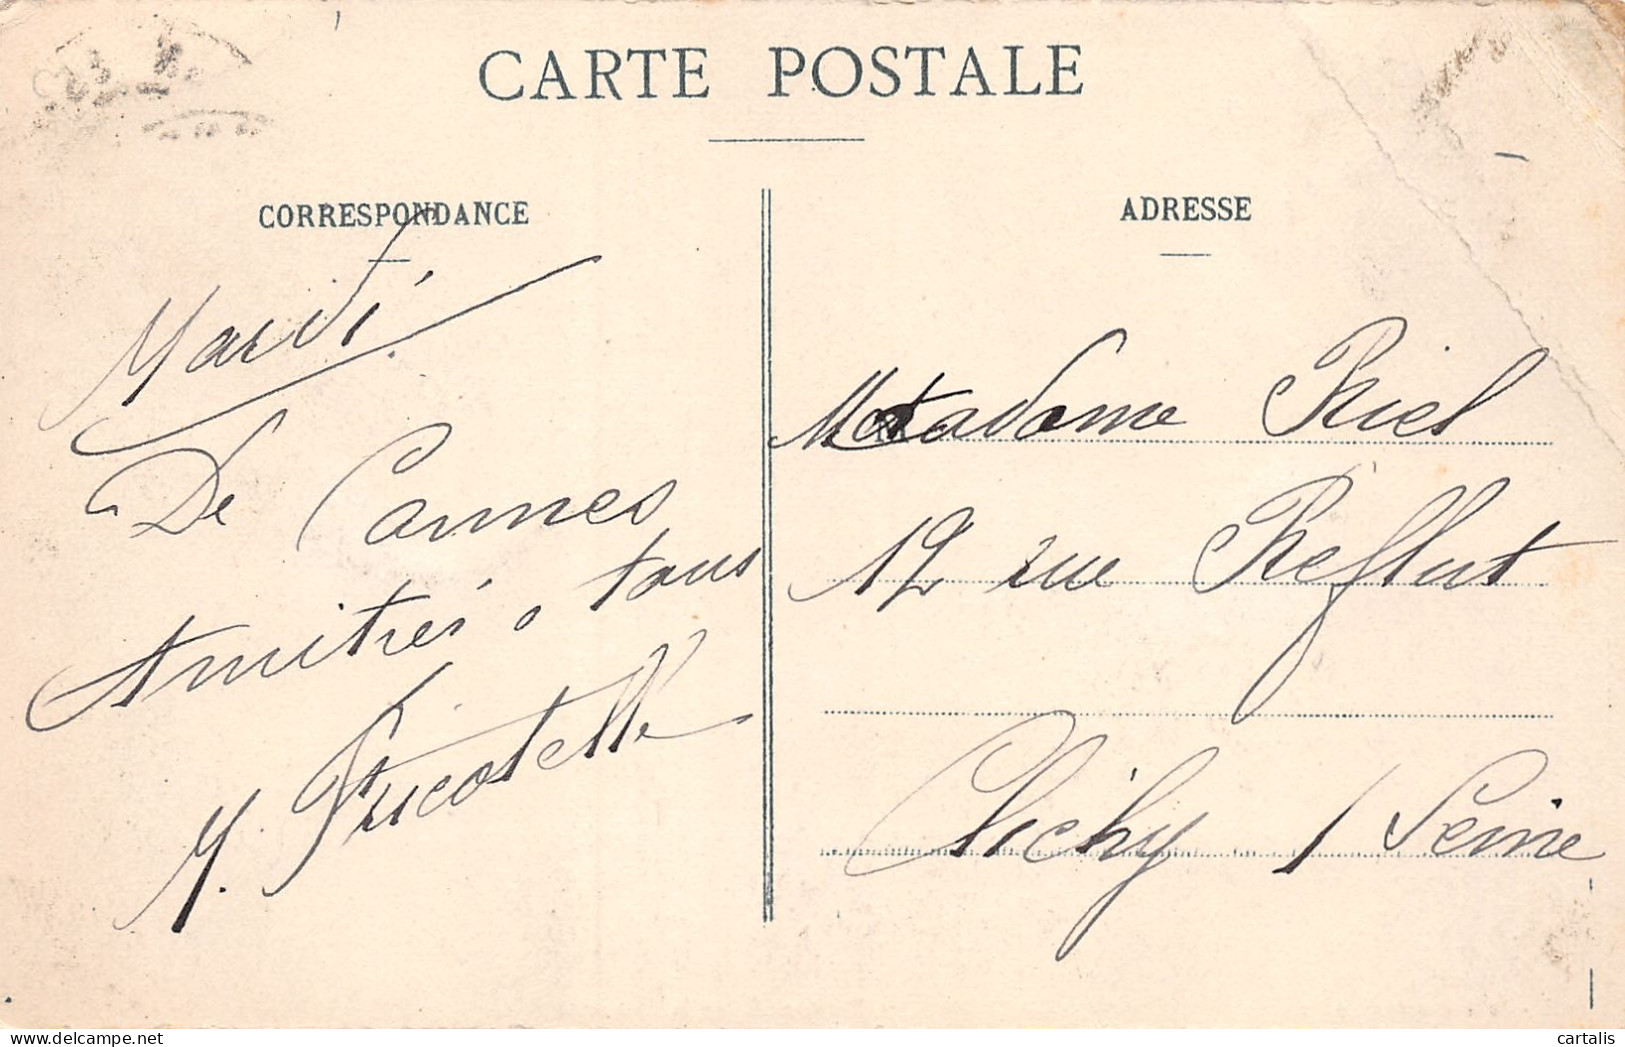 CARTE POSTALE
CORRESPONDANCE
Mardi
De Cannes
Amitiés à tous
M. Fricotelle
ADRESSE
Madame Riel
12 rue Reflut
Clichy / Seine
cartalis